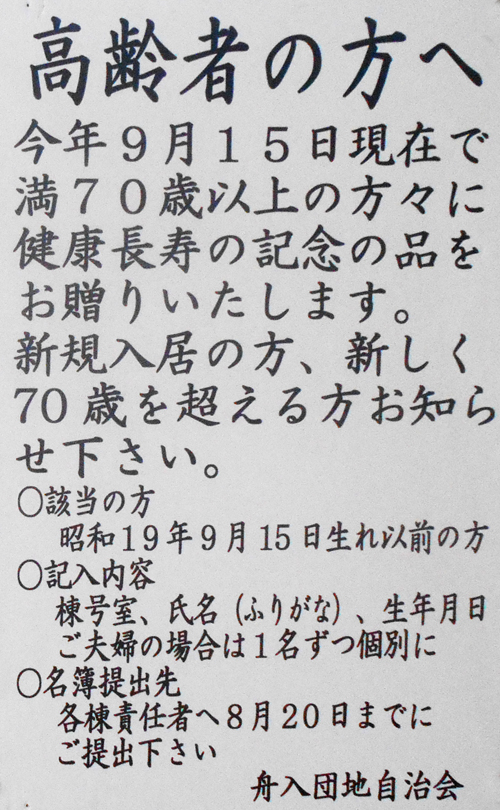 高齢者の方へ
今年９月１５日現在で
満７０歳以上の方々に
健康長寿の記念の品を
お贈りいたします。
新規入居の方、新しく
70歳を超える方お知ら
せ下さい。
〇該当の方
昭和19年９月15日生れ以前の方
〇記入内容
棟号室、氏名（ふりがな）、生年月日
ご夫婦の場合は１名ずつ個別に
〇名簿提出先
各棟責任者へ８月20日までに
ご提出下さい
舟入団地自治会